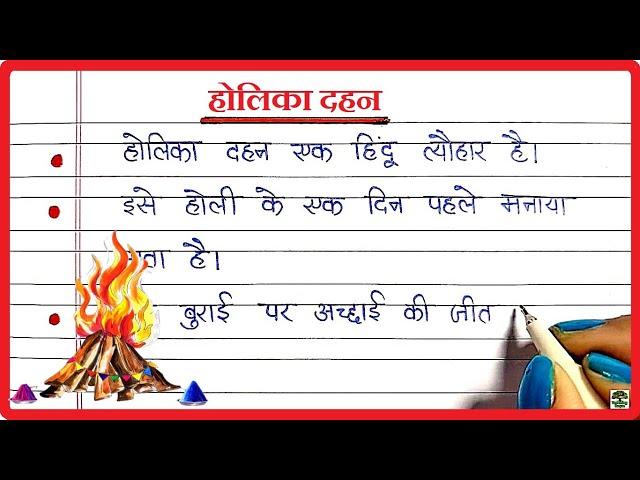 होलिका दहन
होलिका दहन एक हिंदू त्यौहार है।
इसे होली के एक दिन पहले मनाया
है।
बुराई पर अच्छाई की जीत